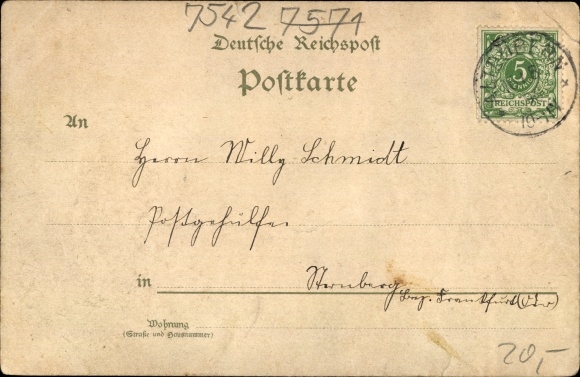 7542 7571
Deutsche Reichspost
Postkarte
5
REICHSPOST
An
Herrn Willy Schmidt
Postgehülfe
in Sternberg
Bez. Frankfurt (Oder)
Wohnung
(Straße und Hausnummer)
20,-